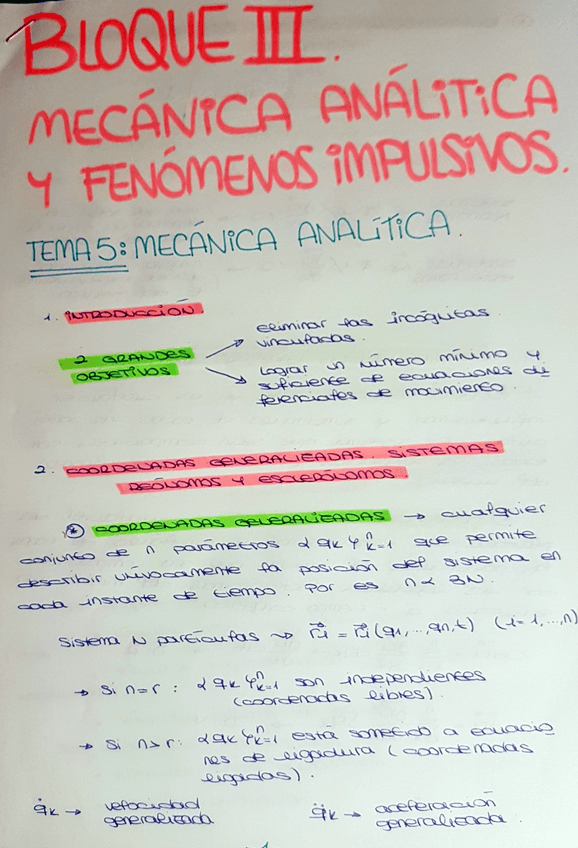 BLOQUE III.
MECÁNICA ANÁLITICA
Y FENÓMENOS IMPULSIVOS.
TEMA 5: MECÁNICA ANALÍTICA.
1. INTRODUCCIÓN.
2 GRANDES OBJETIVOS → eliminar las incógnitas vinculadas.
→ Lograr un número mínimo y
suficiente de ecuaciones di
ferenciales de movimiento.
2. COORDENADAS GENERALIZADAS. SISTEMAS
REÓLOMOS Y ESCLERÓLOMOS.
* COORDENADAS GENERALIZADAS → cualquier
conjunto de n parámetros {qk}ⁿk=1 que permite
describir unívocamente la posición del sistema en
cada instante de tiempo. Por es n< 3N.
Sistema N partículas → r⃗i = r⃗i (q1,...,qn,t) (i=1,...,n)
→ Si n=r: {qk}ⁿk=1 son independientes
(coordenadas libres).
→ Si n>r: {qk}ⁿk=1 está sometido a ecuacio
nes de ligadura (coordenadas
ligadas).
q̇k → velocidad generalizada
q̈k → aceleración generalizada.